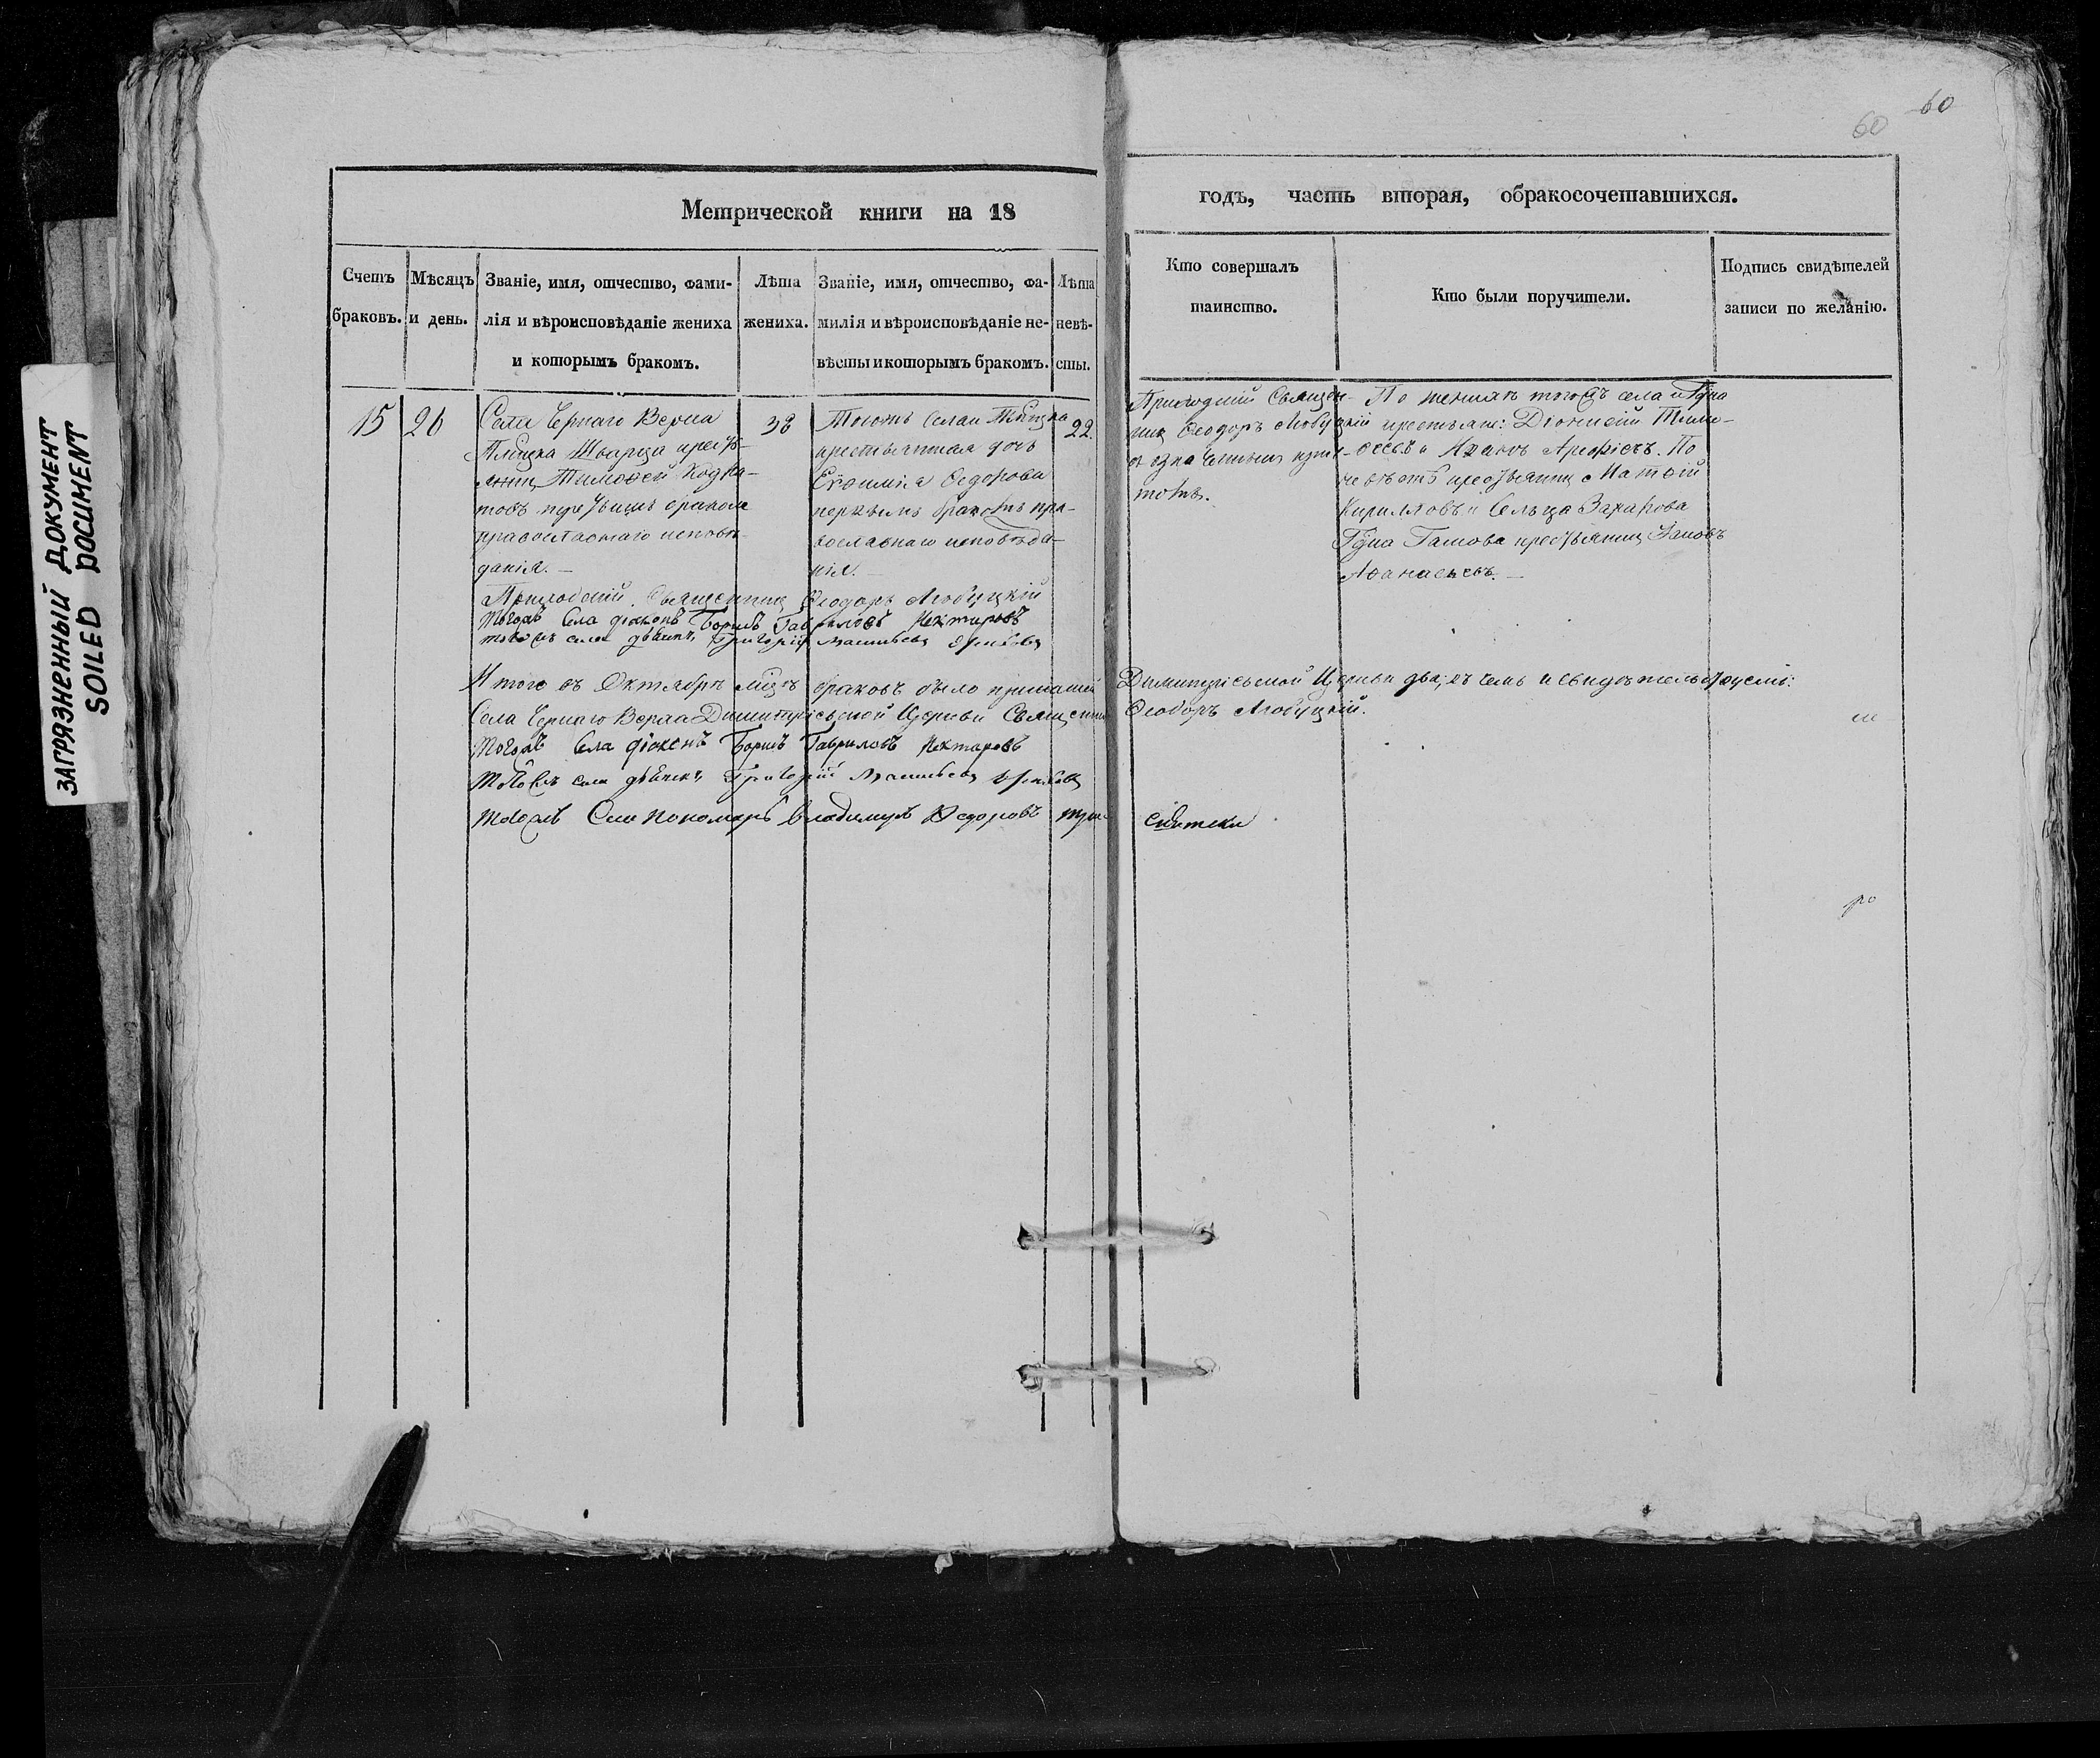 60
60
ЗАГРЯЗНЕННЫЙ ДОКУМЕНТ
SOILED DOCUMENT
Метрической книги на 18
годъ, часть вторая, обракосочетавшихся.
Счетъ браковъ.
Мѣсяцъ и день.
Званіе, имя, отчество, фами-
лія и вѣроисповѣданіе жениха
и которымъ бракомъ.
Лѣта
жениха.
Званіе, имя, отчество, фа-
милія и вѣроисповѣданіе не-
вѣсты и которымъ бракомъ.
Лѣта
невѣ-
сты.
Кто совершалъ
таинство.
Кто были поручители.
Подпись свидѣтелей
записи по желанію.
15
26
Села Чернаго Верха
Тимоѳей
бракомъ
православнаго исповѣ-
данія. —
38
Тогожъ села
крестьянская дочь
Евѳимія Ѳедорова
первымъ бракомъ пра-
вославнаго исповѣда-
нія. —
22.
Приходскій Священ-
никъ Ѳеодоръ Любуцкій
съ означеннымъ прич-
томъ.
По женихѣ тогожъ села
крестьяне: Діонисій Тимо-
ѳеевъ и Арефіевъ. По
невѣстѣ крестьянинъ Матвей
Кирилловъ и Сельца Захарова
крестьянинъ
Аѳанасьевъ. —
Приходскій Священникъ Ѳеодоръ Любуцкій
Тогожъ Села діаконъ Борисъ Гавриловъ Нектаровъ
тогожъ села дьячекъ Григорій Васильевъ
Итого въ Октябрѣ мѣсяцѣ браковъ было при нашей Димитріевской Церкви два; въ чемъ и свидѣтельствуемъ:
Села Чернаго Верха Димитріевской Церкви Священникъ Ѳеодоръ Любуцкій.
Тогожъ Села діаконъ Борисъ Гавриловъ Нектаровъ
Тогожъ села дьячекъ Григорій Васильевъ
Тогожъ Села пономарь Владимиръ Ѳедоровъ